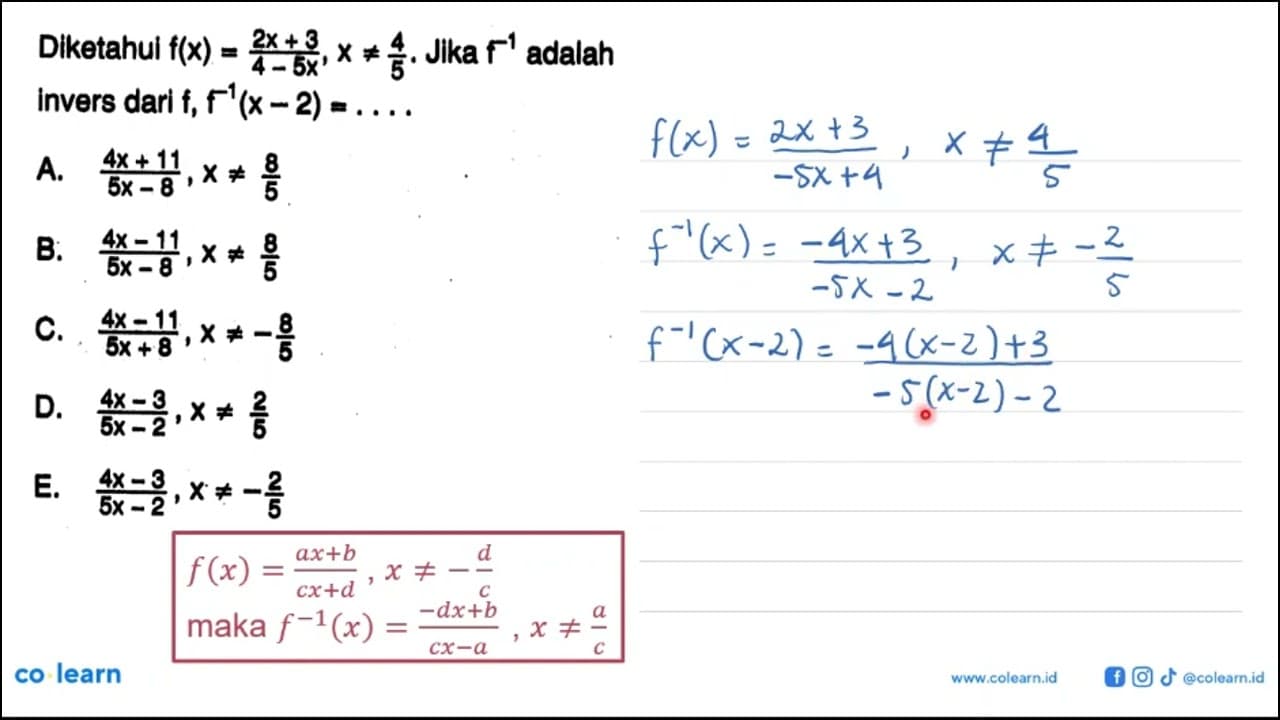 Diketahui f(x) = \frac{2x + 3}{4 - 5x}, x ≠ \frac{4}{5}. Jika f⁻¹ adalah
invers dari f, f⁻¹(x - 2) = . . . .
A. \frac{4x + 11}{5x - 8}, x ≠ \frac{8}{5}
B. \frac{4x - 11}{5x - 8}, x ≠ \frac{8}{5}
C. \frac{4x - 11}{5x + 8}, x ≠ -\frac{8}{5}
D. \frac{4x - 3}{5x - 2}, x ≠ \frac{2}{5}
E. \frac{4x - 3}{5x - 2}, x ≠ -\frac{2}{5}
f(x) = \frac{ax+b}{cx+d}, x ≠ -\frac{d}{c}
maka f⁻¹(x) = \frac{-dx+b}{cx-a}, x ≠ \frac{a}{c}
f(x) = \frac{2x + 3}{-5x + 4}, x ≠ \frac{4}{5}
f⁻¹(x) = \frac{-4x + 3}{-5x - 2}, x ≠ -\frac{2}{5}
f⁻¹(x-2) = \frac{-4(x-2)+3}{-5(x-2)-2}
co learn
www.colearn.id
@colearn.id